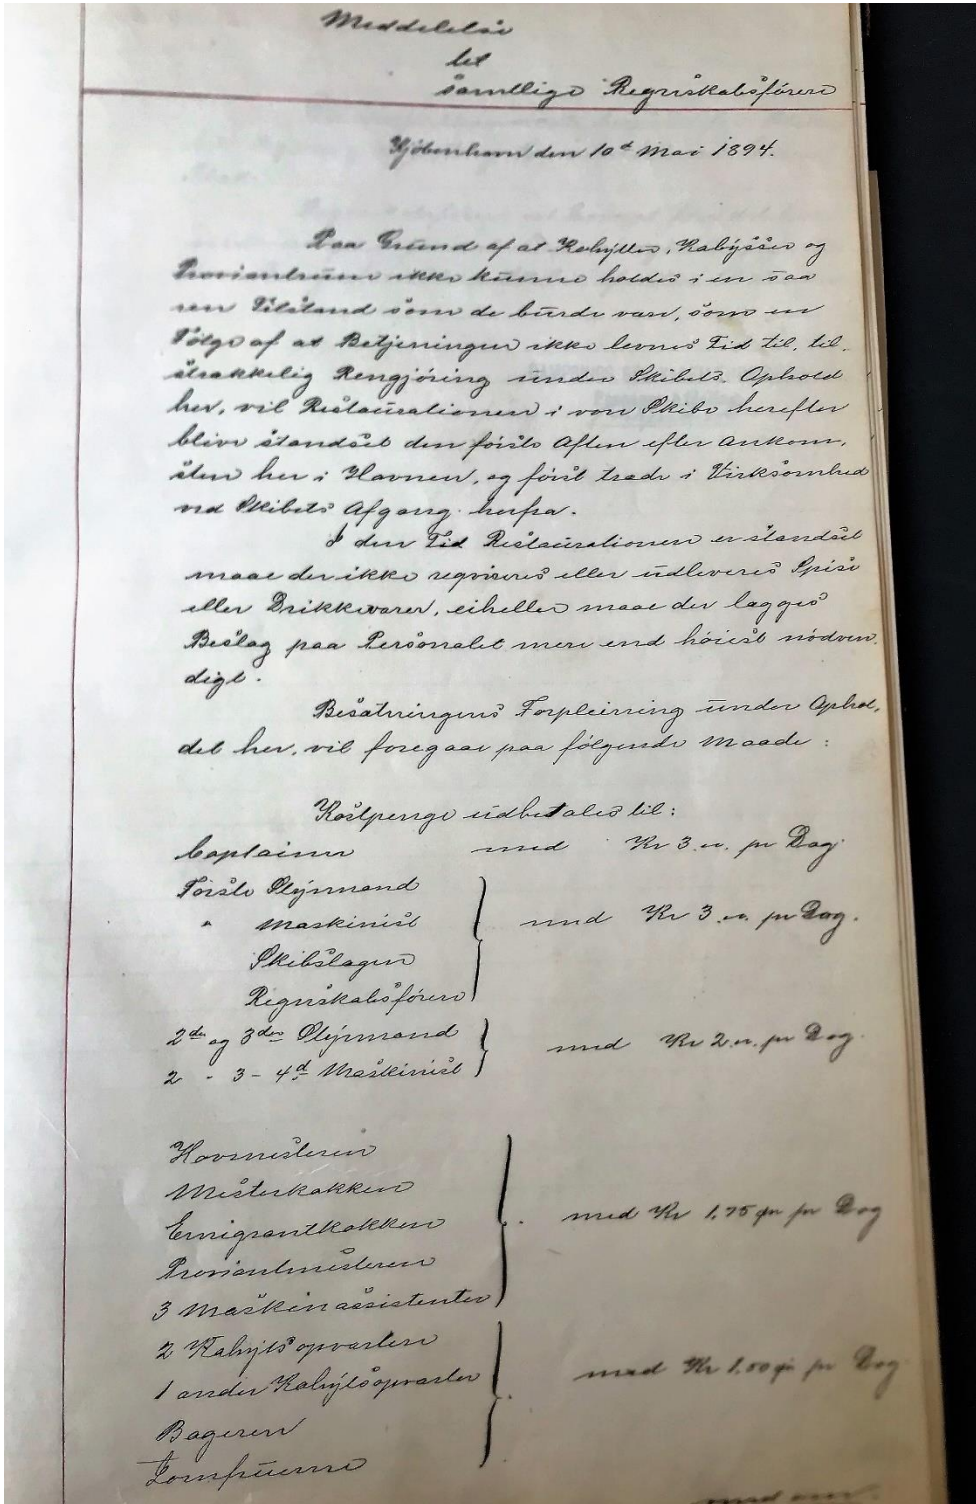 Meddelelse
til
samtlige Regnskabsførere
Kjöbenhavn den 10d Mai 1894.
Paa Grund af at Kahytter, Kabysser og
Proviantrum ikke kunne holdes i en saa
ren Tilstand som de burde være, som en
Følge af at Betjeningen ikke levnes Tid til, til-
strækkelig Rengjöring under Skibets Ophold
her, vil Restaurationen i vore Skibe herefter
blive standset den förste Aften efter Ankom-
sten her i Havnen, og först træde i Virksomhed
ved Skibets Afgang herfra.
I den Tid Restaurationen er standset
maae der ikke reqvireres eller udleveres Spise
eller Drikkevarer, eiheller maae der lægges
Beslag paa Personalet mere end höiest nödven-
digt.
Besætningens Forpleining under Ophol-
det her, vil foregaae paa følgende Maade:
Kostpenge udbetales til:
Captainen med Kr 3.00. pr Dag.
Förste Styrmand
" Maskinist med Kr 3.00. pr Dag.
Skibslægen
Regnskabsføreren
2den og 3den Styrmand med Kr 2.00. pr Dag.
2 - 3 - 4d Maskinist
Hovmesteren
Mesterkokken
Emigrantkokken med Kr 1.75 pr Dag
Proviantmesteren
3 Maskinassistenter
2 Kahytsopvartere
1 anden Kahytsopvarter med Kr 1.00 pr Dag
Bageren
Jomfruerne